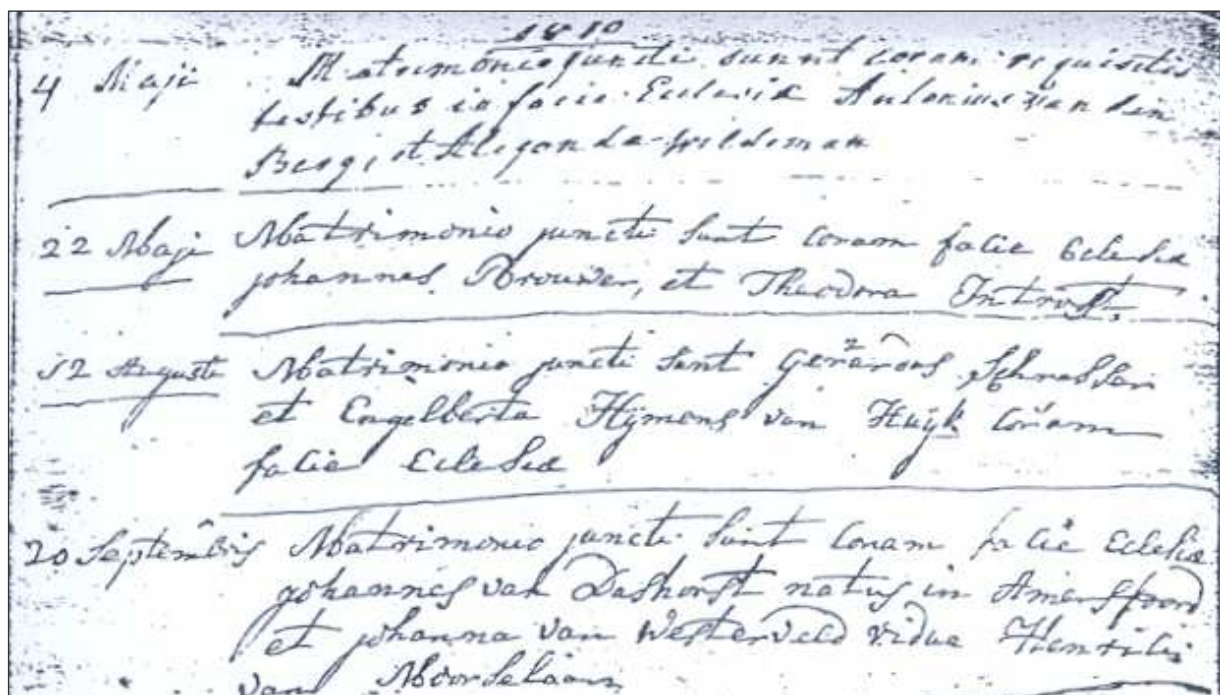 1810
4 Maji Matrimonio juncti sunt coram requisitis
testibus in facie Eclesiæ Antonius van den
Berg, et Alegonda Wildeman
22 Maji Matrimonio juncti sunt coram facie Eclesiæ
johannes Brouwer, et Theodora Introst.
12 Augusti Matrimonio juncti sunt Gerardus
et Engelberta Hÿmens van Huÿk coram
facie Eclesiæ
20 Septembris Matrimonio juncti sunt coram facie Eclesiæ
johannes van Dashorst natus in Amersfoord
et johanna van Westerveld vidue Henrici
van Moorselaar